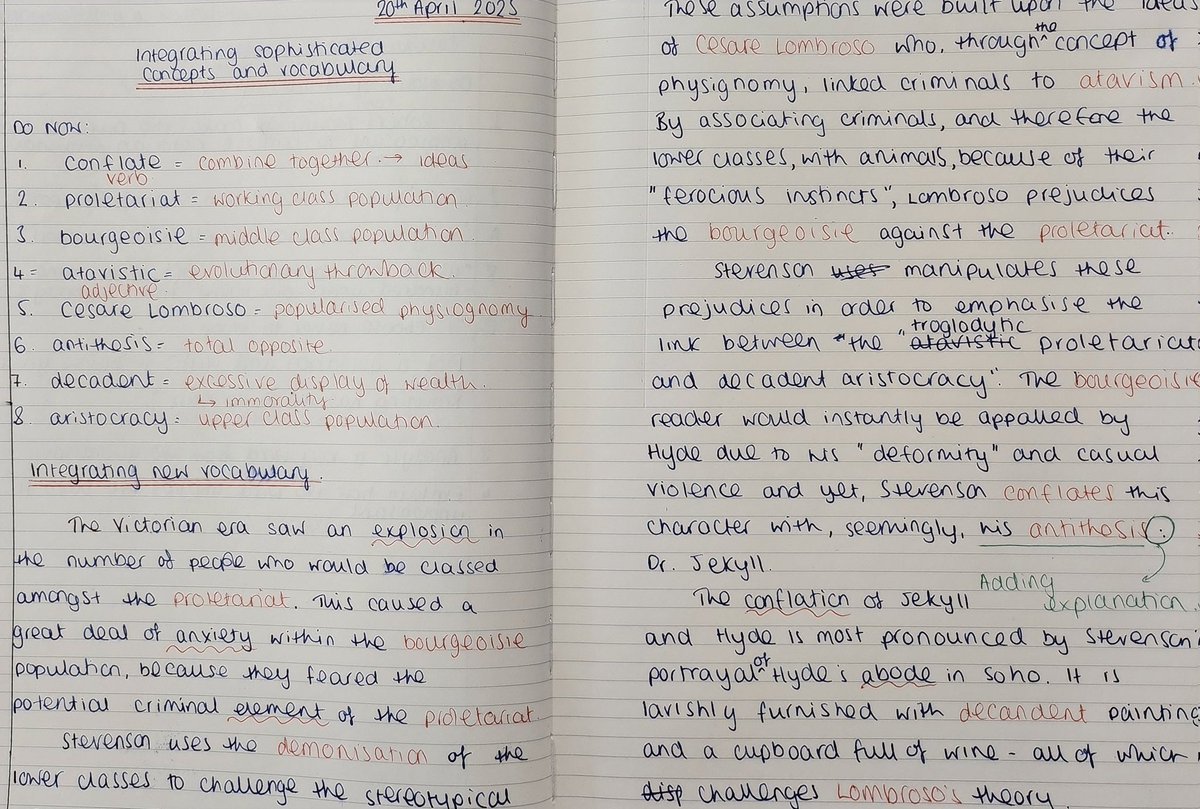 20th April 2025
Integrating sophisticated
concepts and vocabulary
DO NOW:
1. conflate = combine together → ideas
verb
2. proletariat = working class population
3. bourgeoisie = middle class population.
4 = atavistic = evolutionary throwback.
adjective
5. Cesare Lombroso = popularised physiognomy
6. antithesis = total opposite.
7. decadent = excessive display of wealth.
↳ immorality.
8. aristocracy = upper class population.
Integrating new vocabulary.
The Victorian era saw an explosion in
the number of people who would be classed
amongst the proletariat. This caused a
great deal of anxiety within the bourgeoisie
population, because they feared the
potential criminal element of the proletariat.
Stevenson uses the demonisation of the
lower classes to challenge the stereotypical
These assumptions were built upon the ideas
of Cesare Lombroso who, through the concept of
physignomy, linked criminals to atavism.
By associating criminals, and therefore the
lower classes, with animals, because of their
"ferocious instincts", Lombroso prejudices
the bourgeoisie against the proletariat.
Stevenson uses manipulates these
prejudices in order to emphasise the
"troglodytic
link between "the atavistic proletariat
and decadent aristocracy". The bourgeoisie
reader would instantly be appalled by
Hyde due to his "deformity" and casual
violence and yet, Stevenson conflates this
character with, seemingly, his antithesis.
Dr. Jekyll.
Adding
explanation.
The conflation of Jekyll
and Hyde is most pronounced by Stevenson
portrayal of Hyde's abode in Soho. It is
lavishly furnished with decandent painting
and a cupboard full of wine - all of which
disp challenges Lombroso's theory